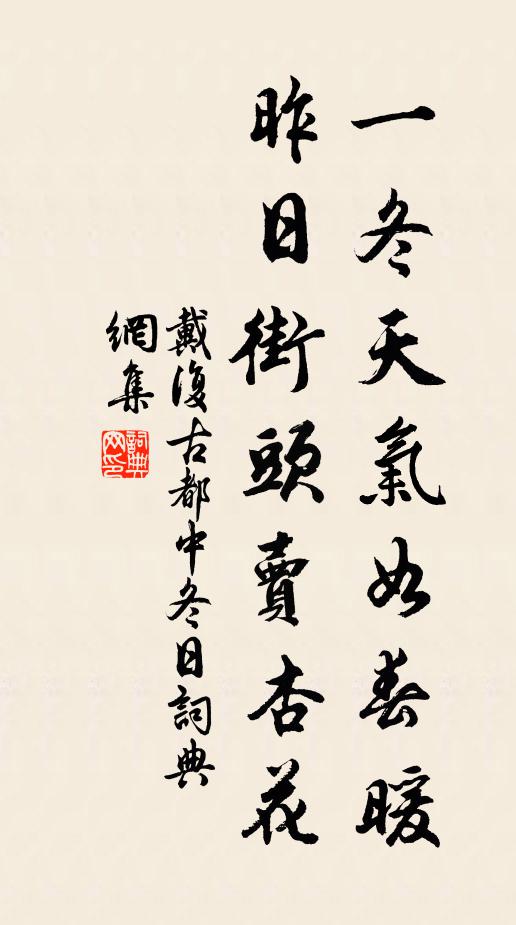 一冬天氣如春暖
昨日街頭賣杏花
戴復古都中冬日詞典
網集
詞典網印